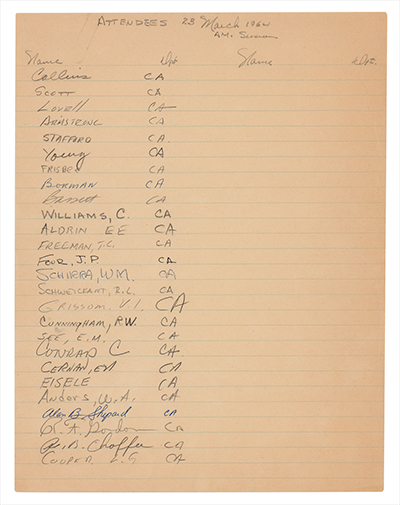 ATTENDEES 23 March 1964
A.M. Session
Name Dpt Name Dpt.
Collins CA
SCOTT CA
Lovell CA
ARMSTRONG CA
STAFFORD CA.
Young CA
FRISBEE CA
BORMAN CA
Bassett CA
WILLIAMS, C. CA
ALDRIN EE CA
FREEMAN, T.C. CA
FOOR, J.P. CA
SCHIRRA, WM. CA
SCHWEICKART, R.L. CA
GRISSOM, V.I. CA
CUNNINGHAM, R.W. CA
SEE, E.M. CA
CONRAD C CA
CERNAN, EA CA
EISELE CA
Anders, W.A. CA
Alan B. Shepard CA
R. F. Gordon CA
R.B. Chaffee CA
COOPER, L.G CA